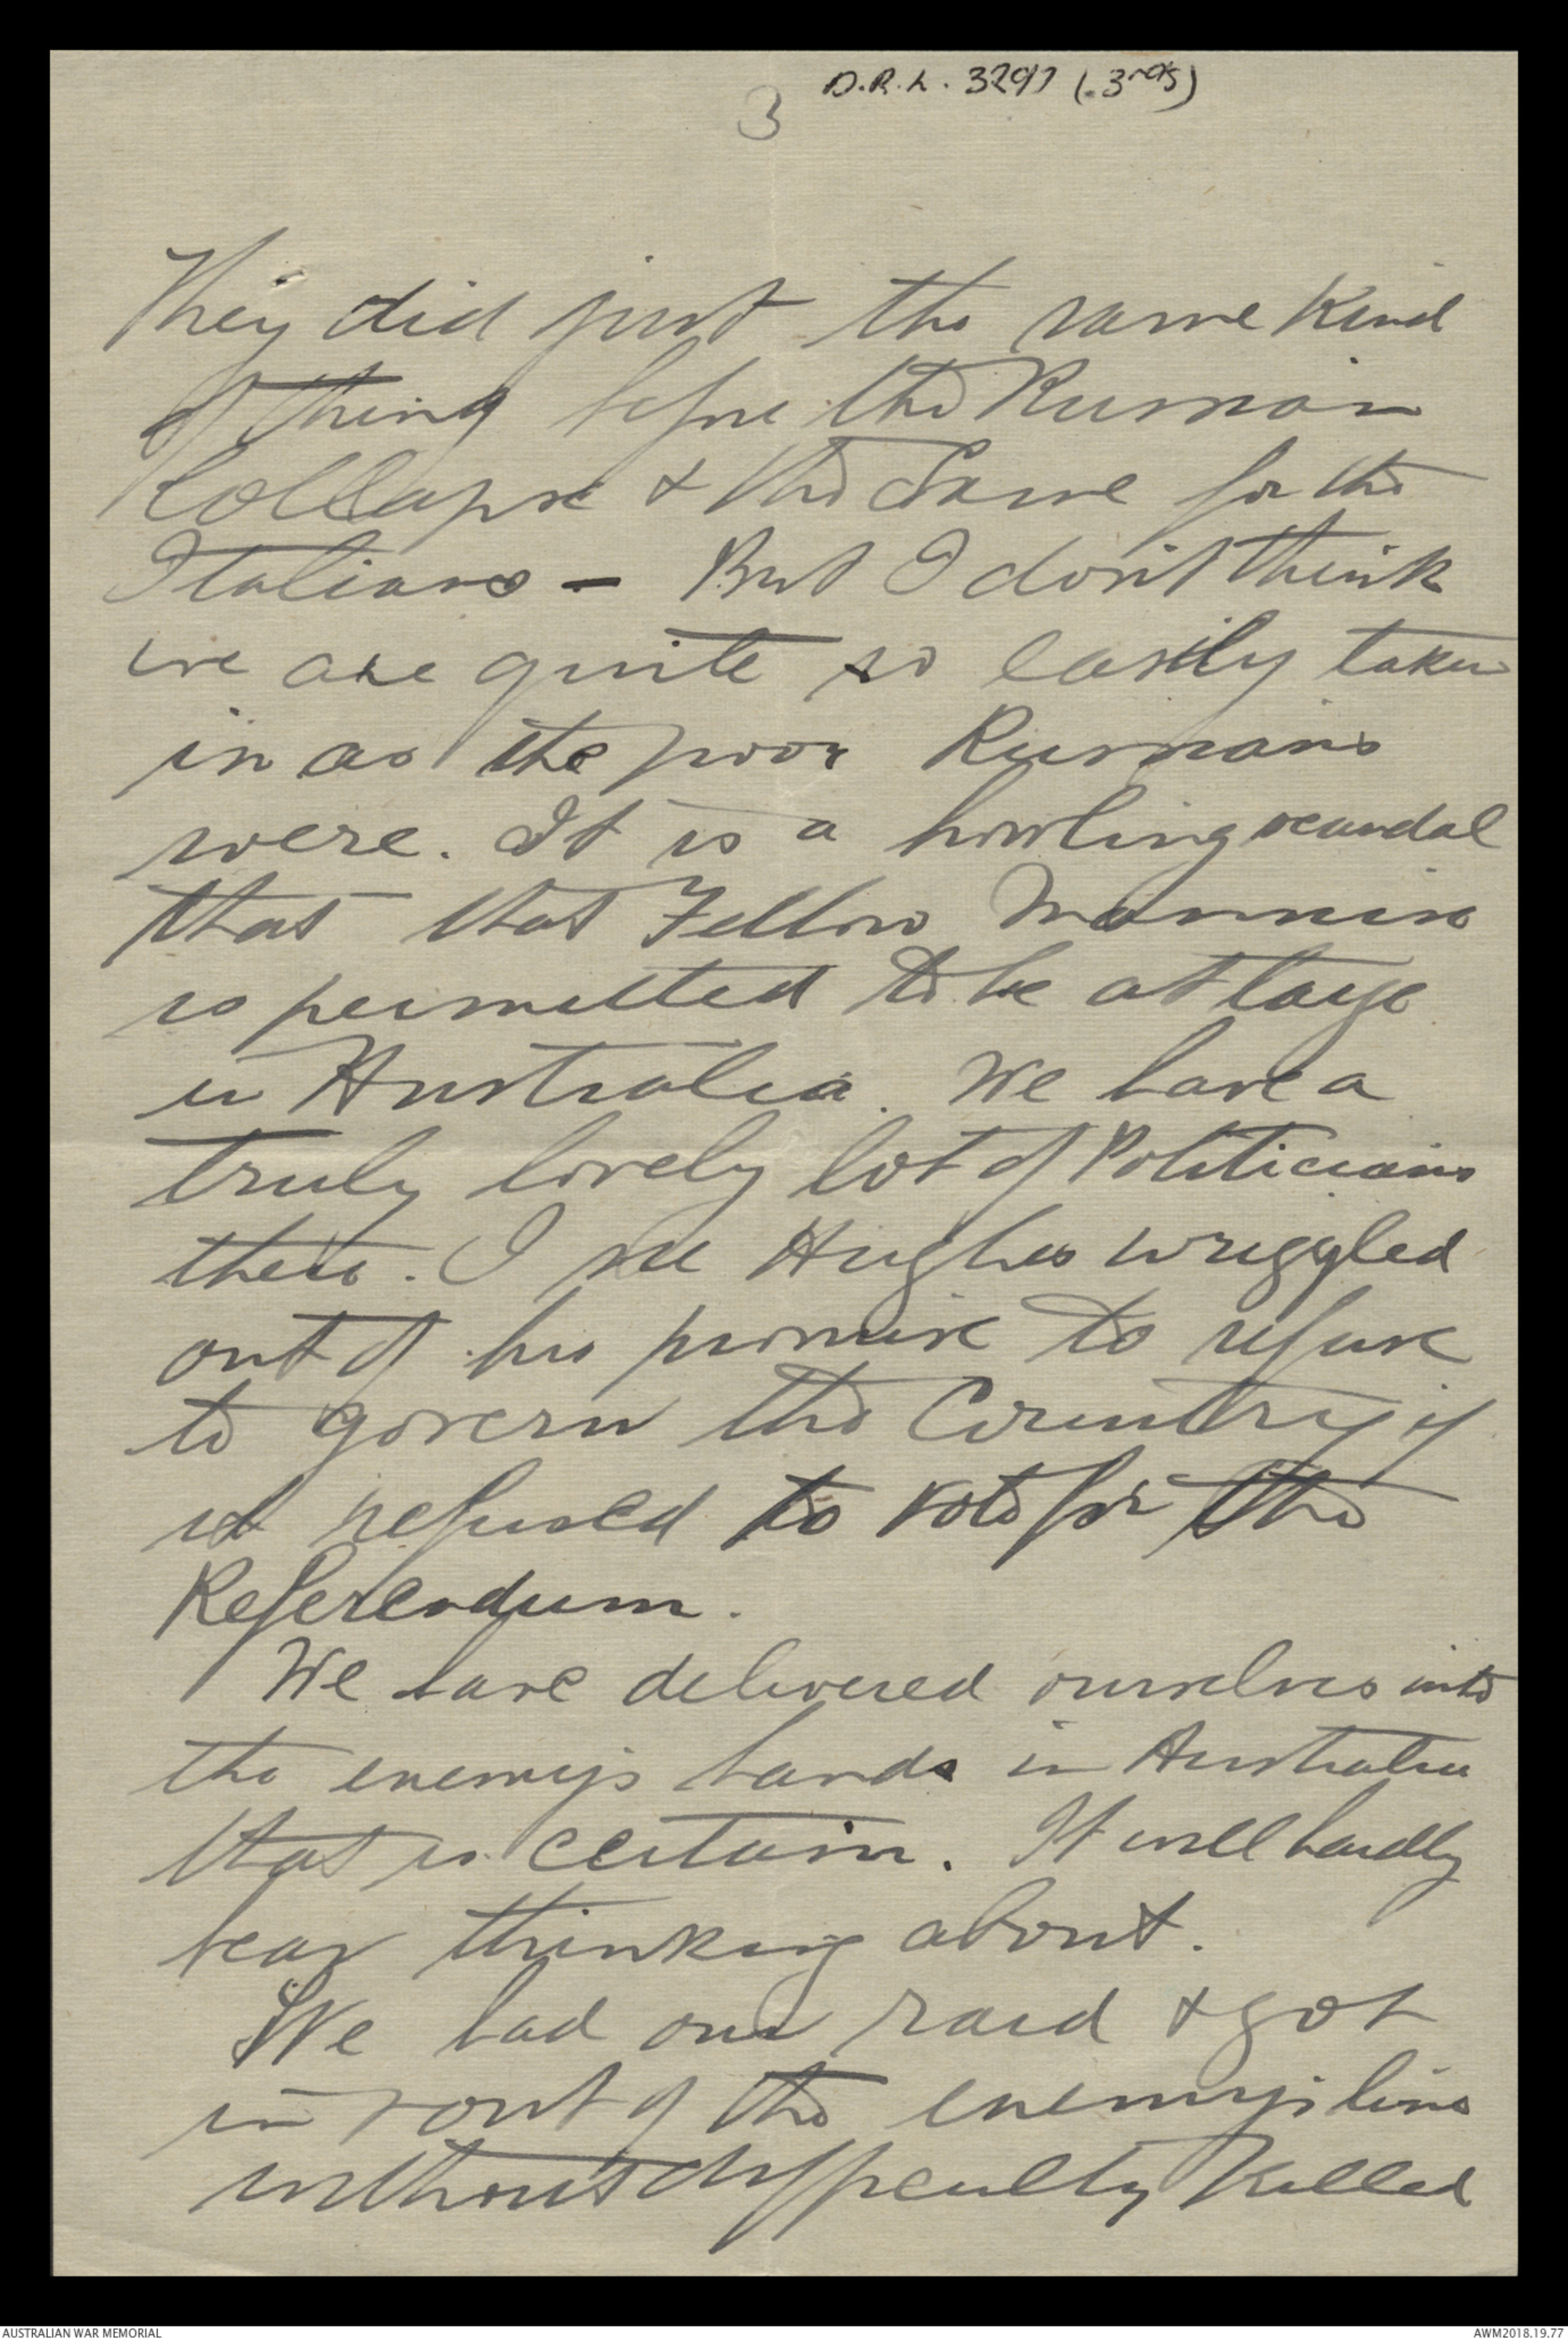 D.R.L. 3297 (.3rd s)
3
They did just the same kind
of thing before the Russian
Collapse & the Same for the
Italians - But I don't think
we are quite so easily taken
in as the poor Russians
were. It is a howling scandal
that that Fellow Mannix
is permitted to be at large
in Australia. We have a
truly lovely lot of Politicians
there. I see Hughes wriggled
out of his promise to refuse
to govern the Country if
it refused to vote for the
Referendum.
We have delivered ourselves into
the enemy's hands in Australia
that is certain. It will hardly
bear thinking about.
We had our raid & got
in & out of the enemy's line
without difficulty killed
AUSTRALIAN WAR MEMORIAL
AWM2018.19.77